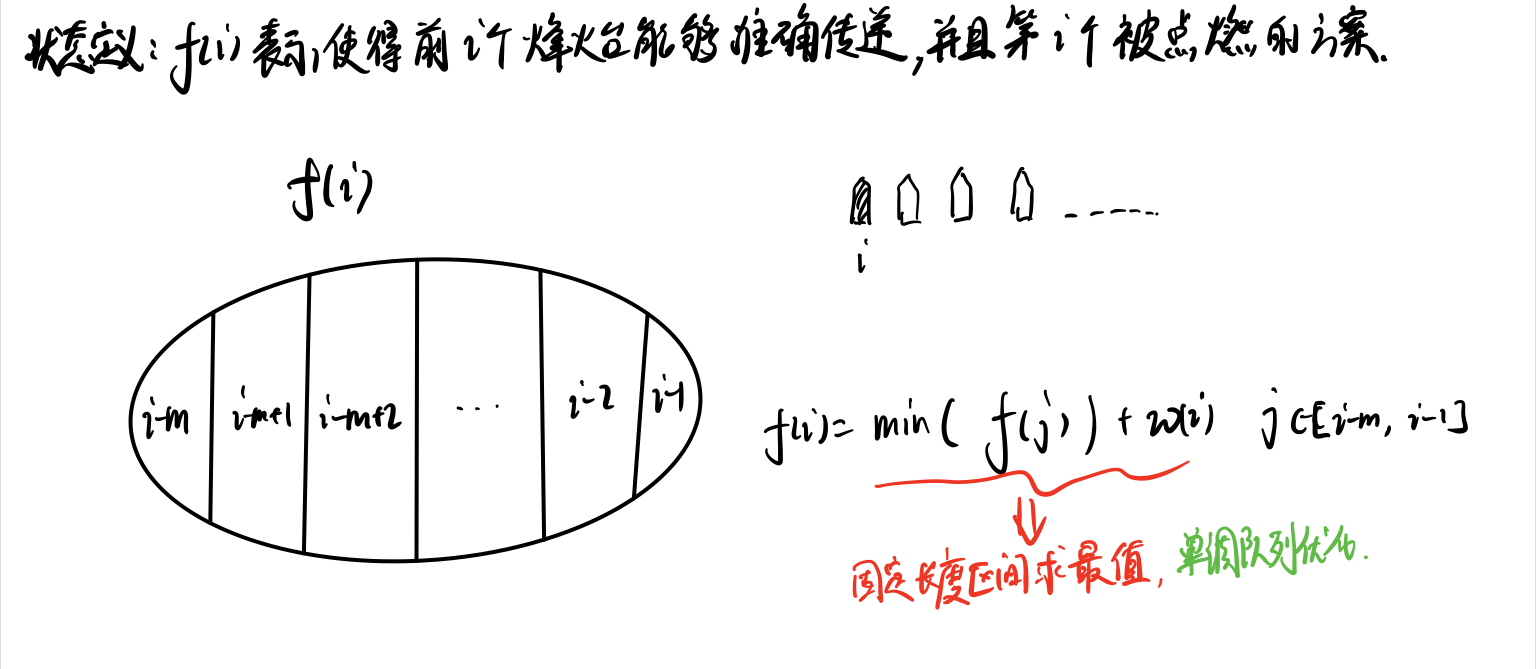 状态定义: f(i) 表示,使得前 i 个烽火台能够准确传递,并且第 i 个被点燃的方案.
f(i)
i
i-m i-m+1 i-m+2 ... i-2 i-1
f(i)= min( f(j) ) + w(i) j∈[i-m, i-1]
固定长度区间求最值, 单调队列优化.